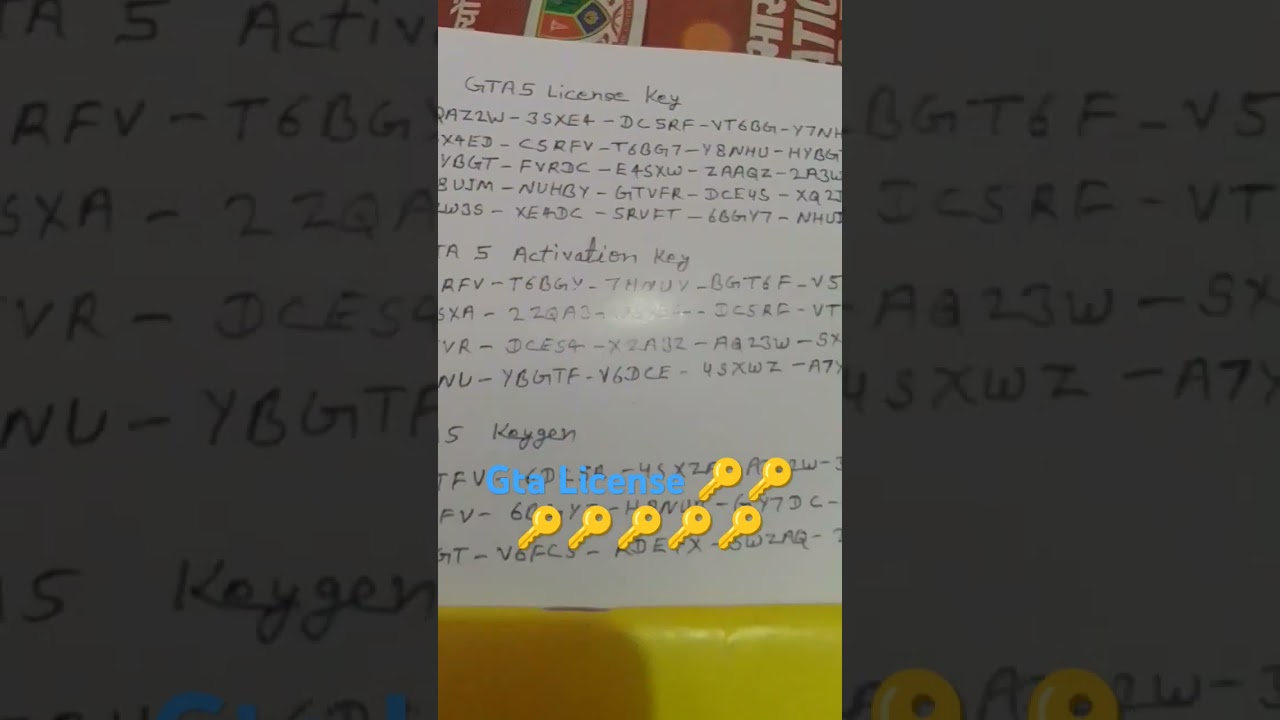 यो
भार
ATION
GTA5 License Key
QAZ2W-3SXE4-DC5RF-VT6BG-Y7NH
X4ED-C5RFV-T6BG7-Y8NHU-HYBGT
YBGT-FVRDC-E4SXW-ZAAQZ-2A3W
8UJM-NUHBY-GTVFR-DCE4S-XQ2
W3S-XE4DC-5RVFT-6BGY7-NHUJ
TA 5 Activation Key
RFV-T6BGY-7HNUY-BGT6F-V5
SXA-2ZQA3- -DC5RF-VT
VR-DCES4-XZA3Z-AQ23W-SX
NU-YBGTF-V6DCE-4SXWZ-A7Y
5 Keygen
TFV -4SXZA
Gta License 🔑🔑
🔑🔑🔑🔑🔑
FV- -GY7DC-
GT-V6FCS- -SWZAQ-